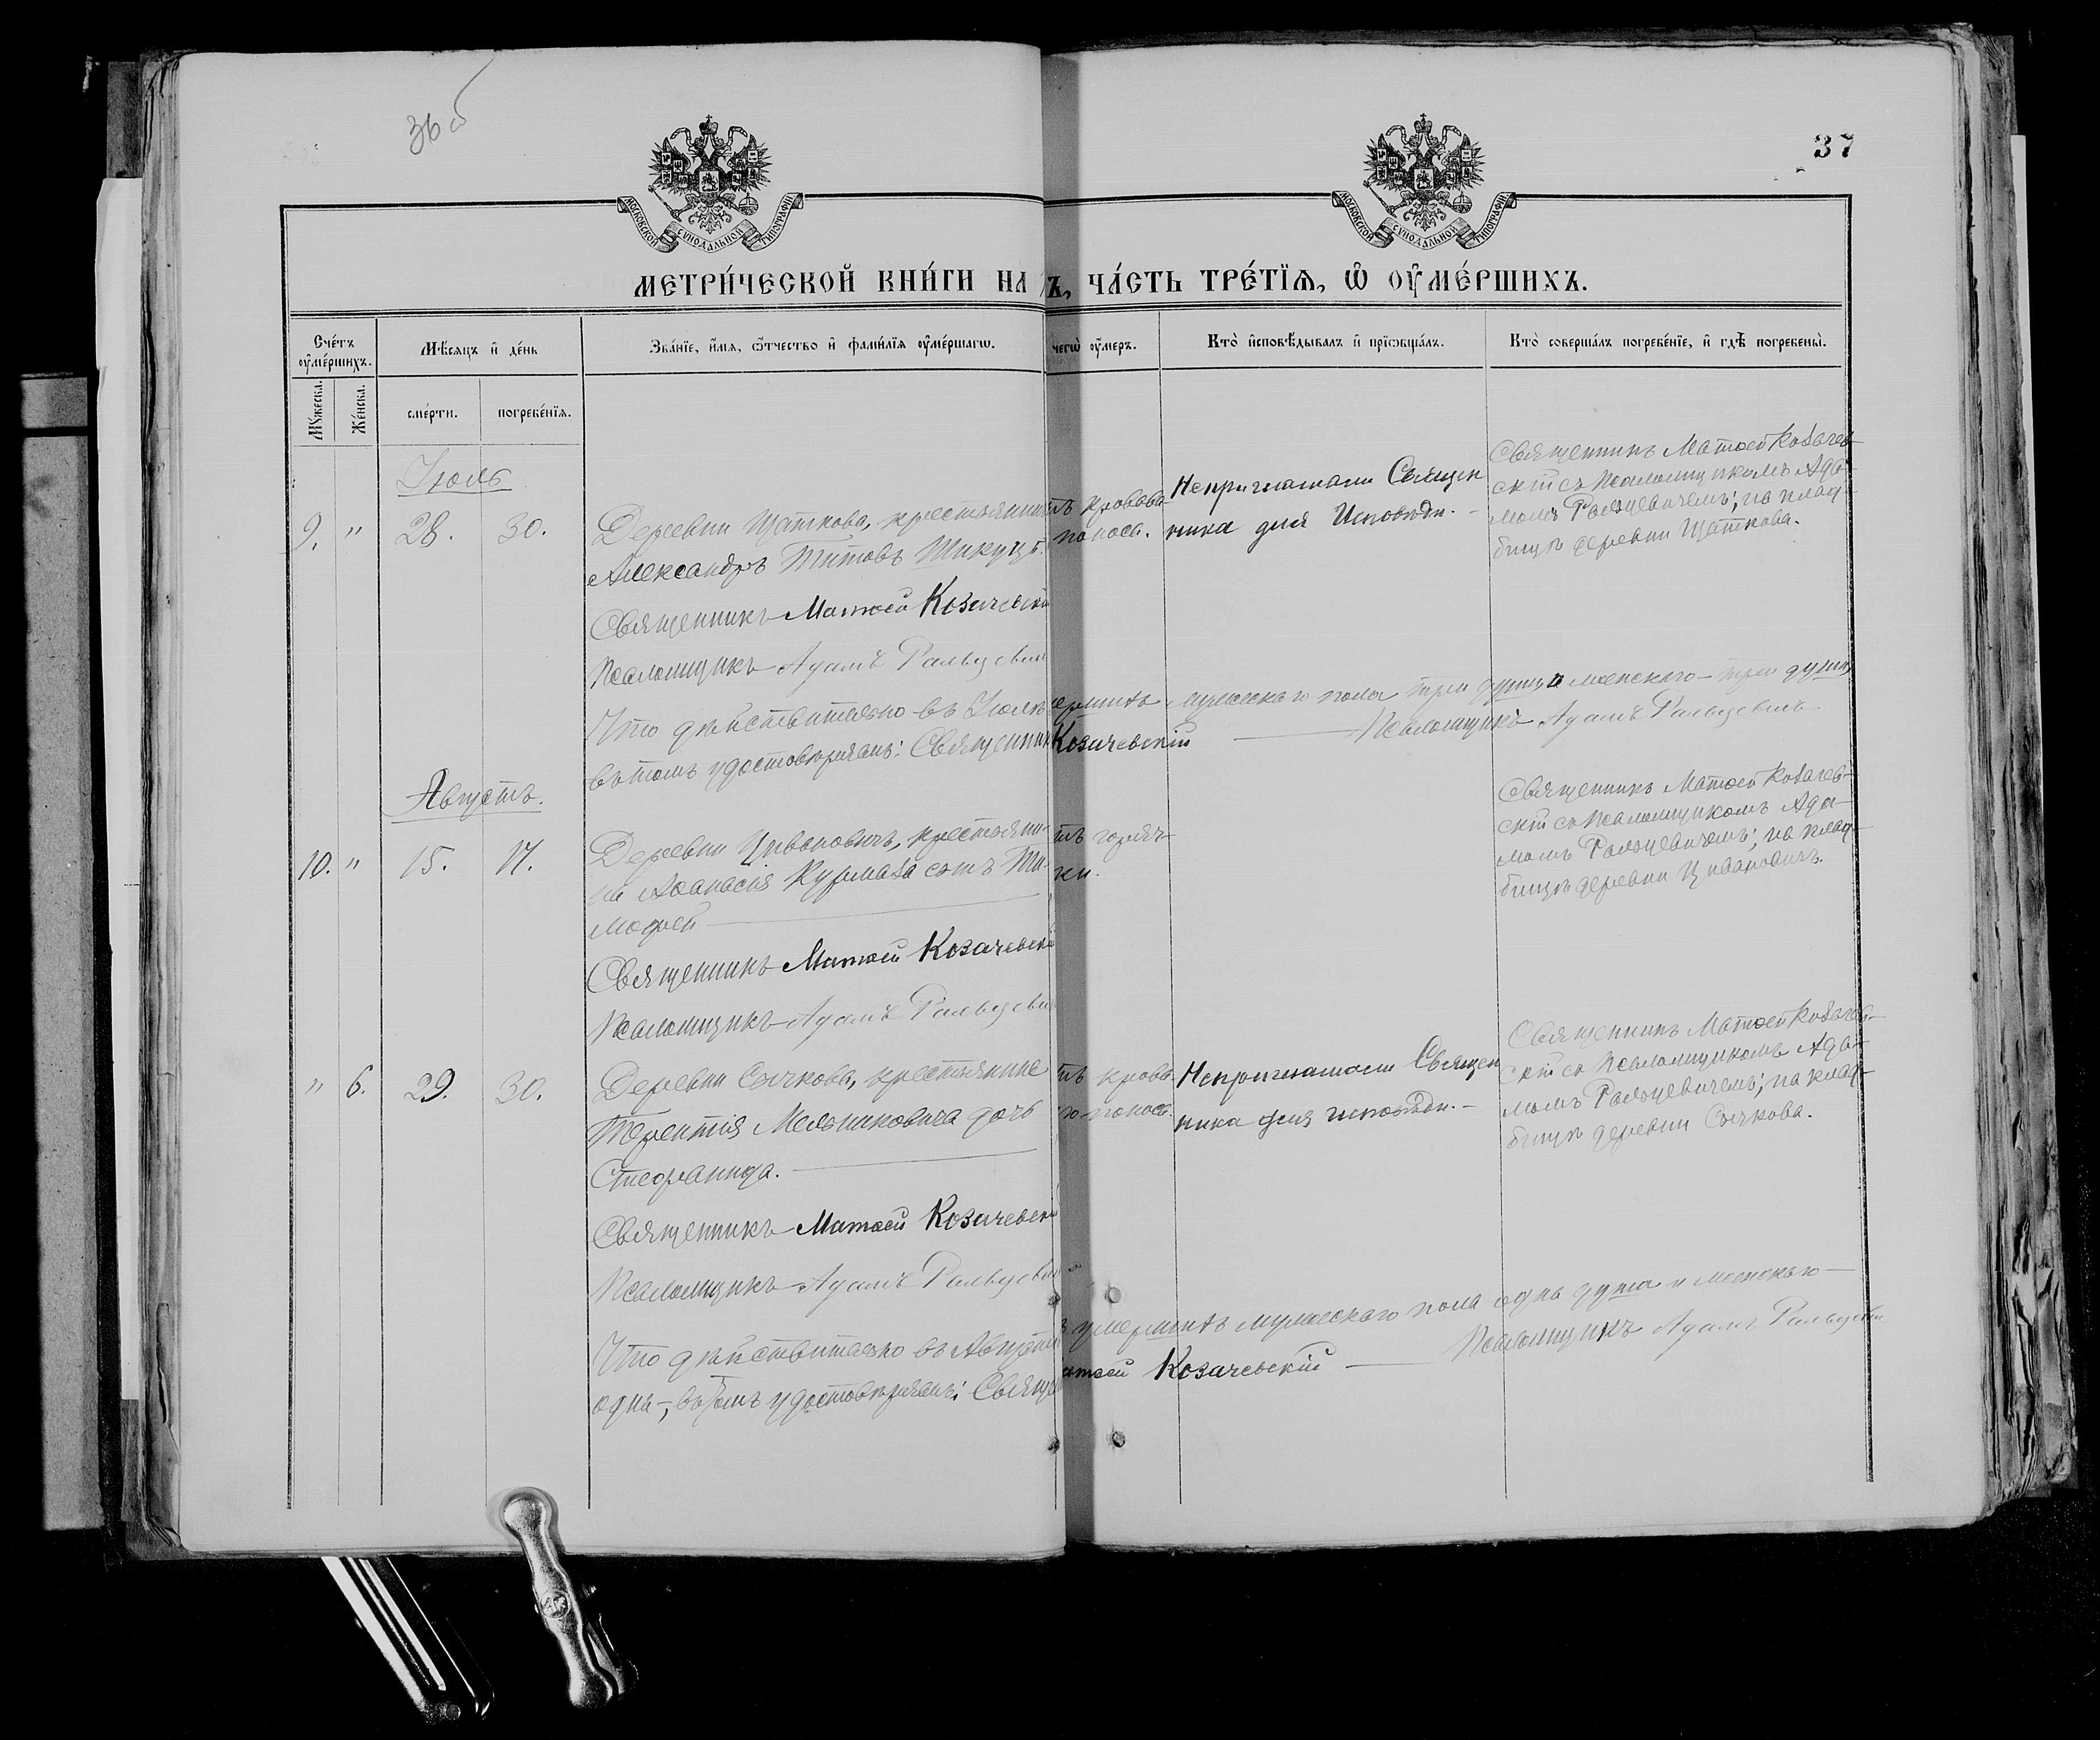 36 об
37
МОСКОВСКОЙ СѴНОДАЛЬНОЙ ТИПОГРАФІИ
МОСКОВСКОЙ СѴНОДАЛЬНОЙ ТИПОГРАФІИ
МЕТРИ́ЧЕСКОЙ КНИ́ГИ НА
Ъ, ЧА́СТЬ ТРЕ́ТЇѦ, Ѡ҆ ОУ҆МЕ́РШИХЪ.
Сче́тъ оу҆ме́ршихъ.
Мѣ́сяцъ и҆ де́нь
Зва́нїе, и҆́мѧ, ѻ҆́тчество и҆ фами́лїѧ оу҆ме́ршагѡ.
чегѡ̀ оу҆́меръ.
Кто̀ и҆сповѣ́дывалъ и҆ прїѡбща́лъ.
Кто̀ соверша́лъ погребе́нїе, и҆ гдѣ̀ погребены̀.
Мꙋ́жеска.
Же́нска.
сме́рти.
погребе́нїѧ.
Іюль
9. " 28. 30.
Деревни Щаткова, крестьянинъ
Александръ Титовъ Тикуцъ.
тъ кровава
поноса.
Непригласили Священ
ника для Исповѣди. -
Священникъ Матѳей Козачев-
скій съ Псаломщикомъ Ада-
момъ Ральцевичемъ; на клад-
бищѣ деревни Щаткова.
Священникъ Матѳей Козачевскій
Псаломщикъ Адамъ Ральцевич
Что дѣйствительно въ Іюлѣ
ершихъ мужескаго пола три души и женскаго - три души,
въ томъ удостовѣряемъ: Священник
Козачевскій — Псаломщикъ Адамъ Ральцевичъ
Августъ.
10. " 15. 17.
Деревни Цивановичъ, крестьяни-
на Аѳанасія Курмаза сынъ Ти-
моѳей
тъ горяч-
ки.
Священникъ Матѳей Козачев-
скій съ Псаломщикомъ Ада-
момъ Ральцевичемъ; на клад-
бищѣ деревни Цивановичъ.
Священникъ Матѳей Козачевскій
Псаломщикъ Адамъ Ральцеви
" 6. 29. 30.
Деревни Сычкова, крестьянина
Терентія Мельниковича дочь
Стефанида.
тъ крова
го поноса.
Непригласили Священ
ника для исповѣди. -
Священникъ Матѳей Козачев-
скій съ Псаломщикомъ Ада-
момъ Ральцевичемъ; на клад-
бищѣ деревни Сычкова.
Священникъ Матѳей Козачевскій
Псаломщикъ Адамъ Ральцевич
Что дѣйствительно въ Августѣ
умершихъ мужескаго пола одна душа и женскаго —
одна -, въ томъ удостовѣряемъ: Свяще
атѳей Козачевскій — Псаломщикъ Адамъ Ральцевич